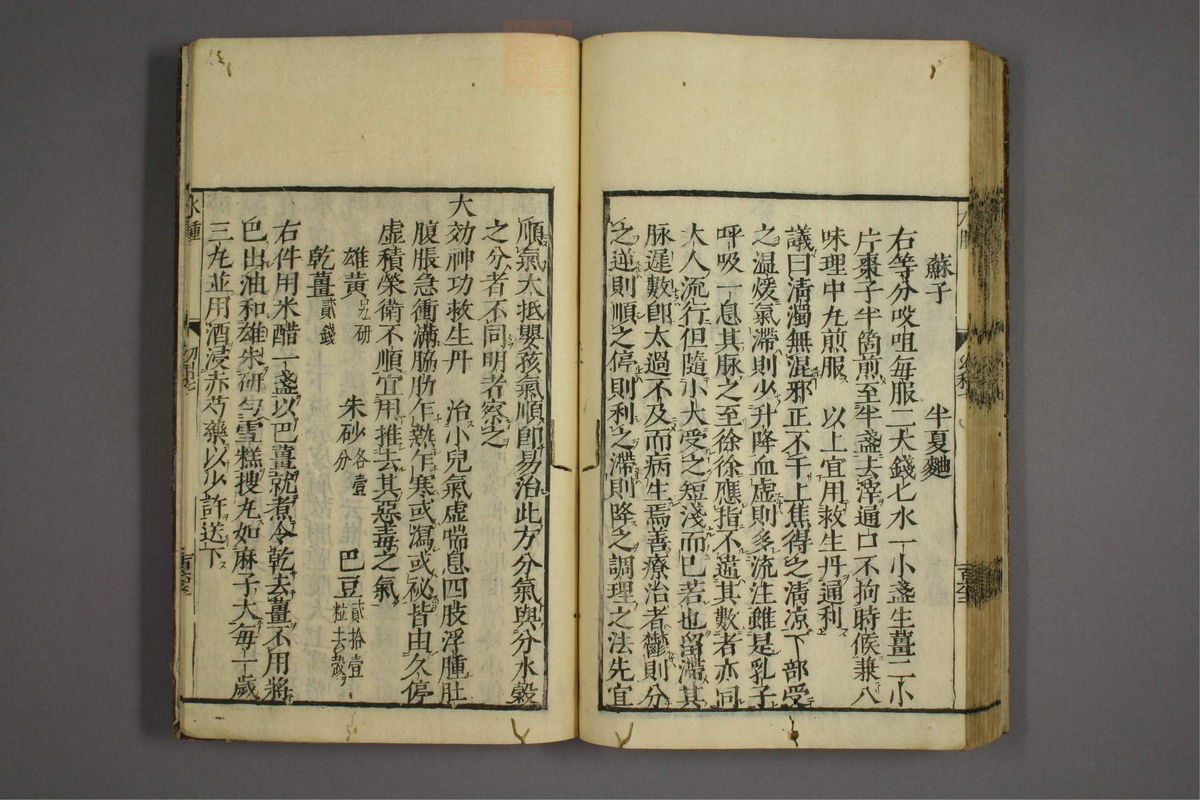 蘇子 半夏麯
右等分㕮咀每服二大錢匕水一小盞生薑二小
片棗子半箇煎至半盞去滓通口不拘時候兼八
味理中丸煎服 以上宜用救生丹通利
議曰清濁無混邪正不干上焦得之清凉下部受
之温煖氣滯則少升降血虚則多流注雖是乳子
呼吸一息其脉之至徐徐應指不違其數者亦同
大人流行但隨小大受之短淺而已若也留滯其
脉遲數卽太過不及而病生焉善療治者鬱則分
之逆則順之停則利之滯則降之調理之法先宜
順氣大抵嬰孩氣順卽易治此方分氣與分水穀
之分者不同明者察之
大効神功救生丹 治小兒氣虚喘息四肢浮腫肚
腹脹急衝滿脇肋乍熱乍寒或瀉或祕皆由久停
虚積榮衛不順宜用推去其惡毒之氣
雄黄另研 朱砂各壹分 巴豆貳拾壹粒去殻
乾薑貳錢
右件用米醋一盞以巴薑就煮令乾去薑不用將
巴出油和雄朱研匀雪糕搜丸如麻子大每一歲
三丸並用酒浸赤芍藥以少許送下
水腫